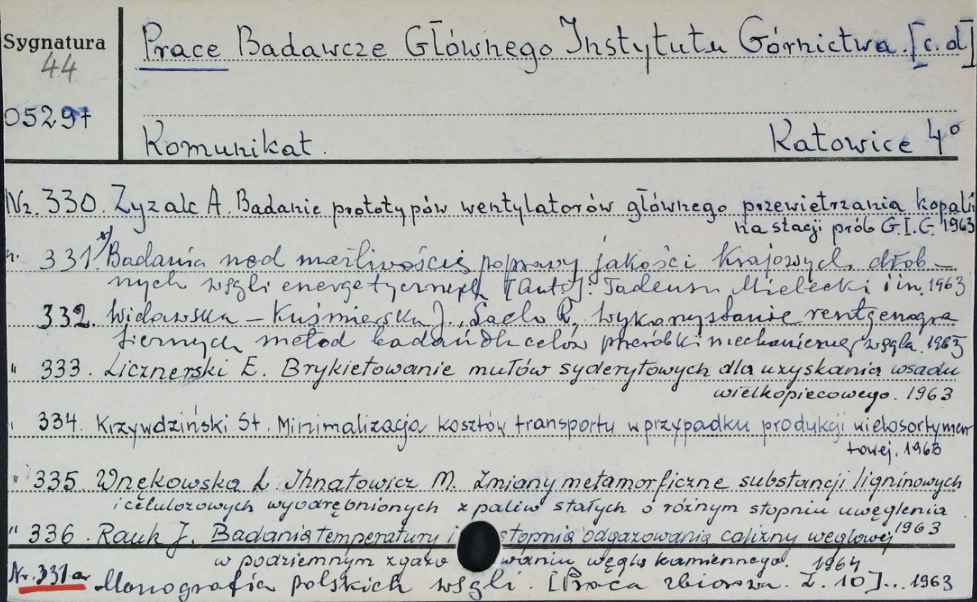 Sygnatura
44
05297
Prace Badawcze Głównego Instytutu Górnictwa. [c.d]
Komunikat. Katowice 4°
Nr. 330. Zyzak A. Badanie prototypów wentylatorów głównego przewietrzania kopalń
na stacji prób G.I.G. 1963
331.*) Badania nad możliwością poprawy jakości krajowych drob-
nych węgli energetycznych [Aut.] Tadeusz Mielecki i in. 1963
332. Widawska-Kuśmierska J., Wykorzystanie rentgenogra
ficznych metod badań dla celów przeróbki mechanicznej węgla. 1963
" 333. Licznerski E. Brykietowanie mułów syderytowych dla uzyskania wsadu
wielkopiecowego. 1963
" 334. Krzywdziński St. Minimalizacja kosztów transportu w przypadku produkcji wielosortymen
towej. 1963
" 335 Wnękowska L. Ihnatowicz M. Zmiany metamorficzne substancji ligninowych
i celulozowych wyodrębnionych z paliw stałych o różnym stopniu uwęglenia
1963
" 336. Rauk J. Badania temperatury i stopnia odgazowania calizny węglowej
w podziemnym zgazowaniu węgla kamiennego. 1964
Nr. 331a Monografia polskich węgli. [Praca zbiorowa. Z. 10]... 1963